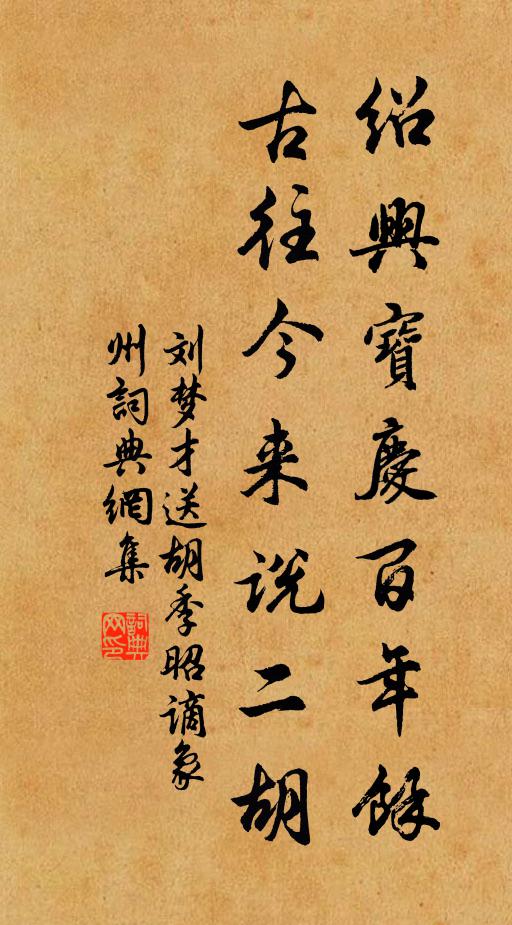 绍興寶慶百年餘
古往今来说二胡
刘梦才送胡季昭谪象
州詞典網集
詞典
网印